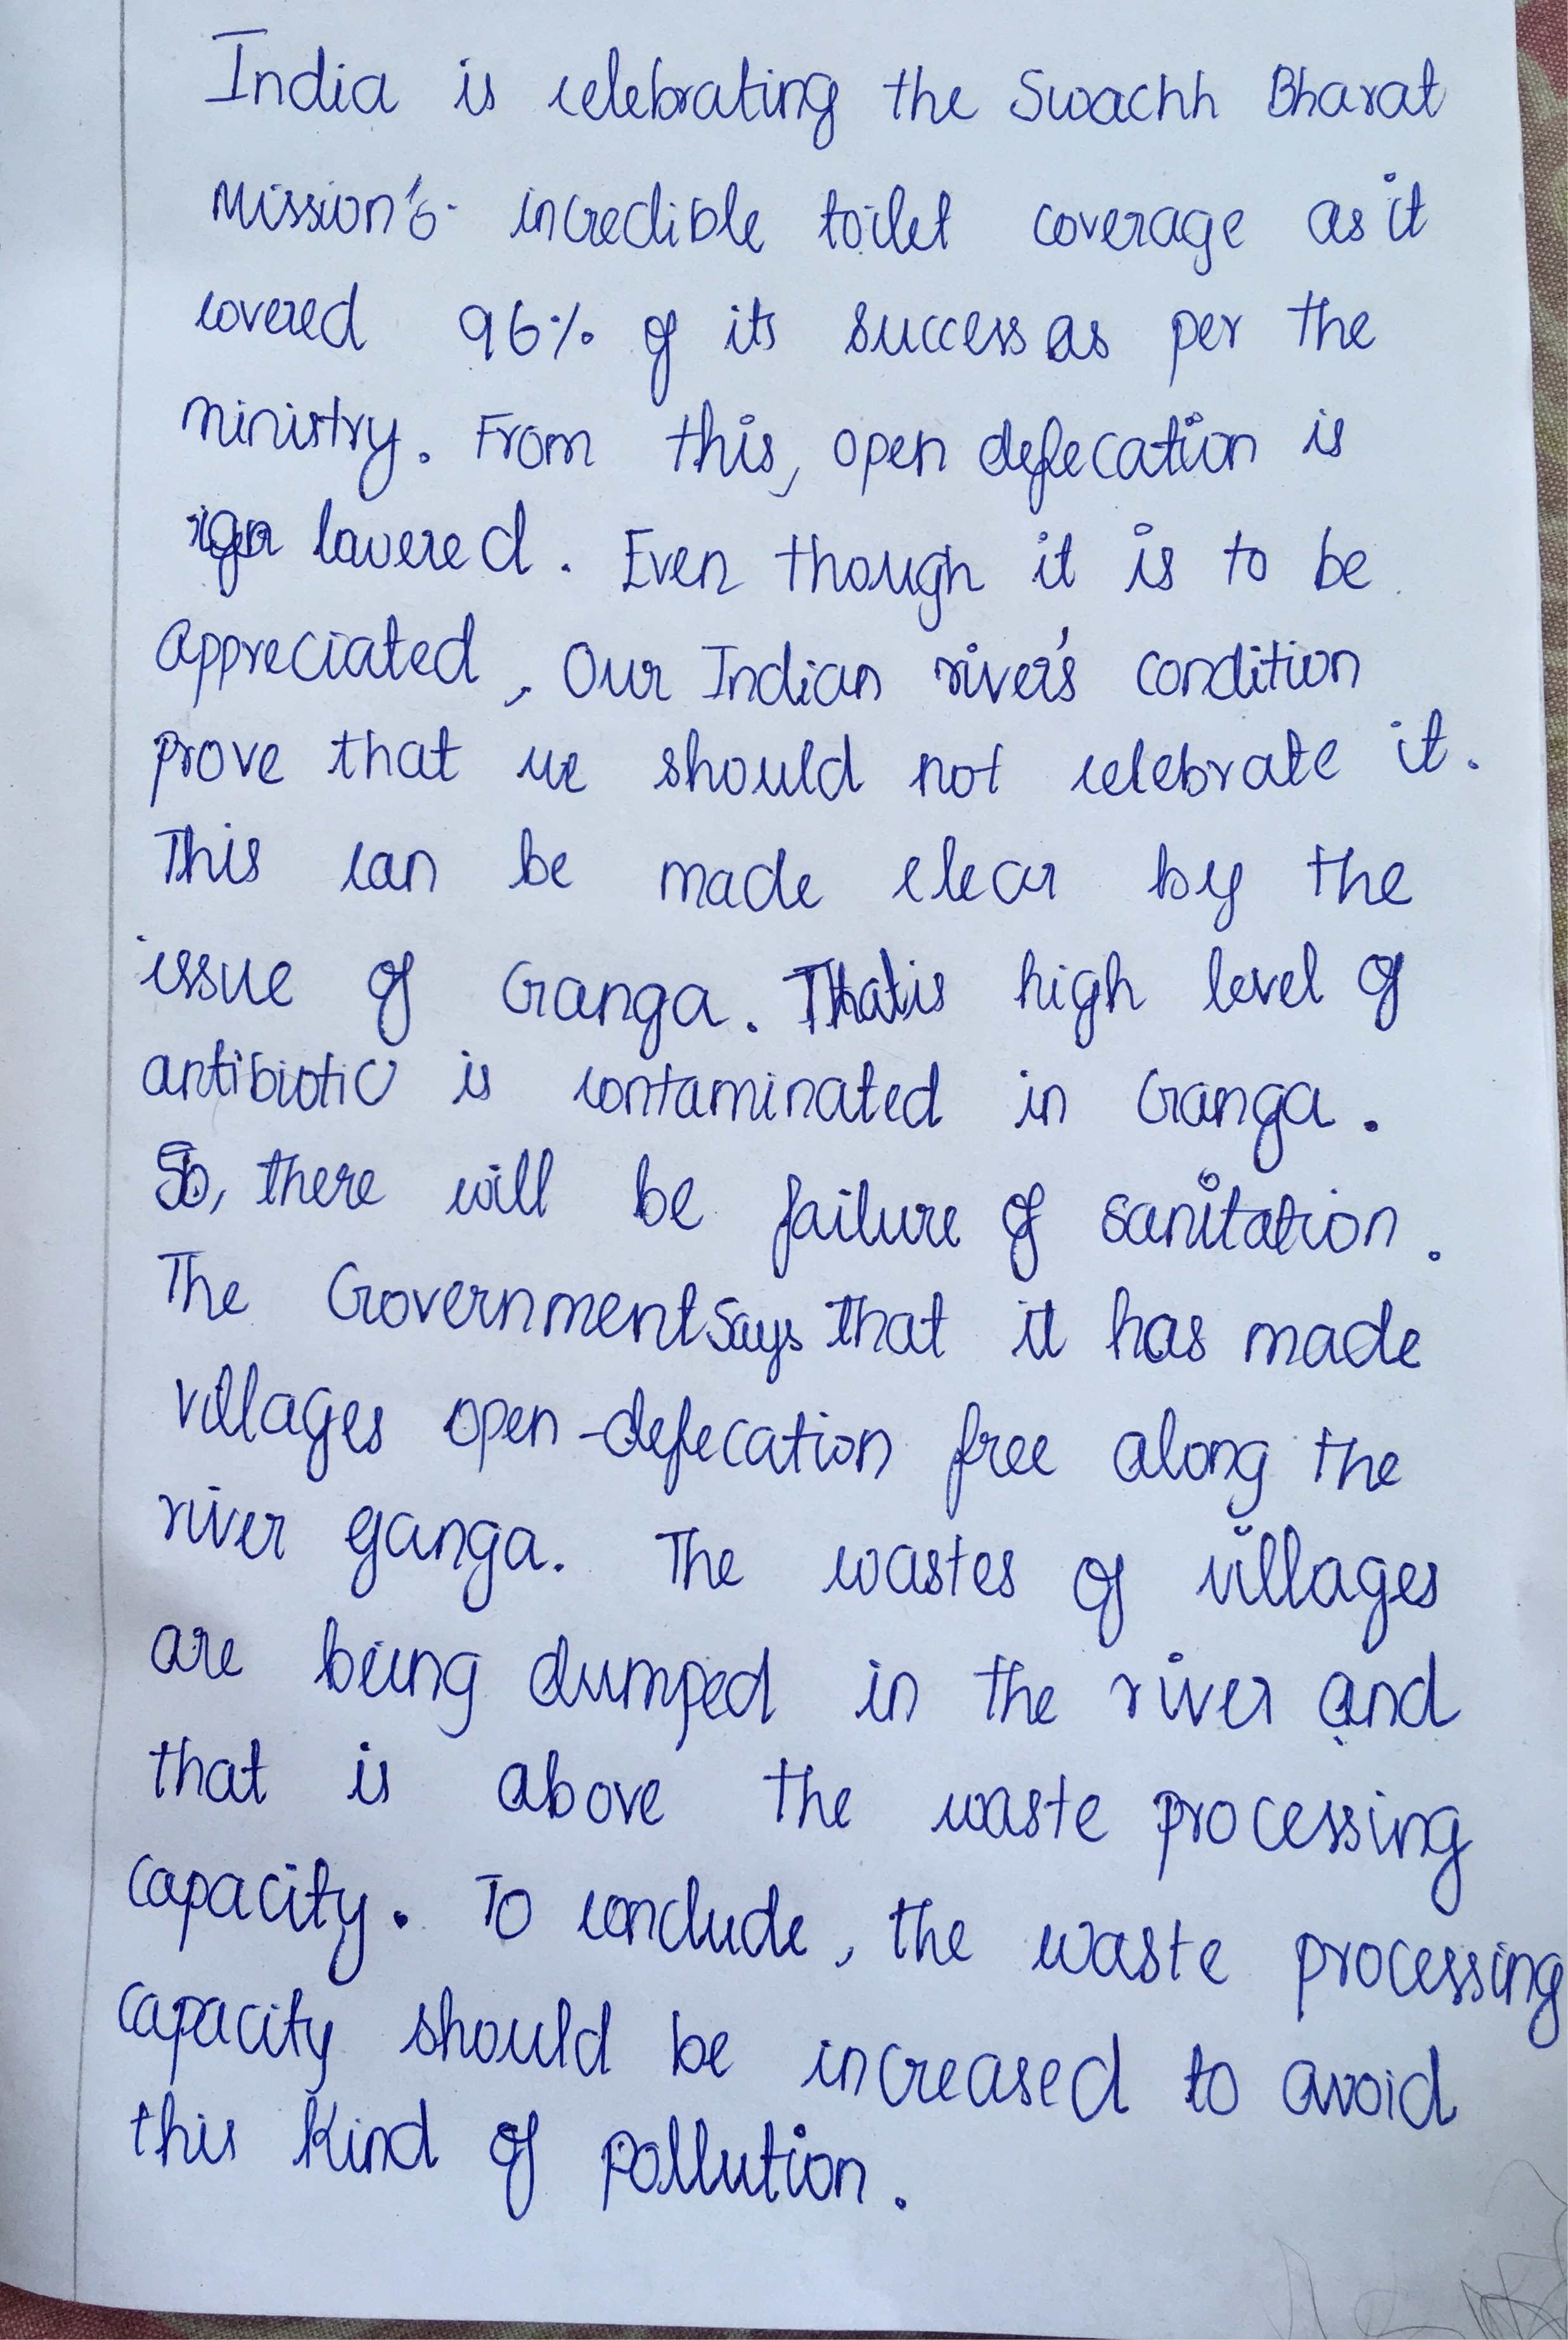 India is celebrating the Swachh Bharat
Mission's incredible toilet coverage as it
covered 96% of its success as per the
ministry. From this, open defecation is
lowered. Even though it is to be
appreciated, Our Indian river's condition
prove that we should not celebrate it.
This can be made clear by the
issue of Ganga. That is high level of
antibiotic is contaminated in Ganga.
So, there will be failure of sanitation.
The Government says that it has made
villages open-defecation free along the
river ganga. The wastes of villages
are being dumped in the river and
that is above the waste processing
capacity. To conclude, the waste processing
capacity should be increased to avoid
this kind of pollution.